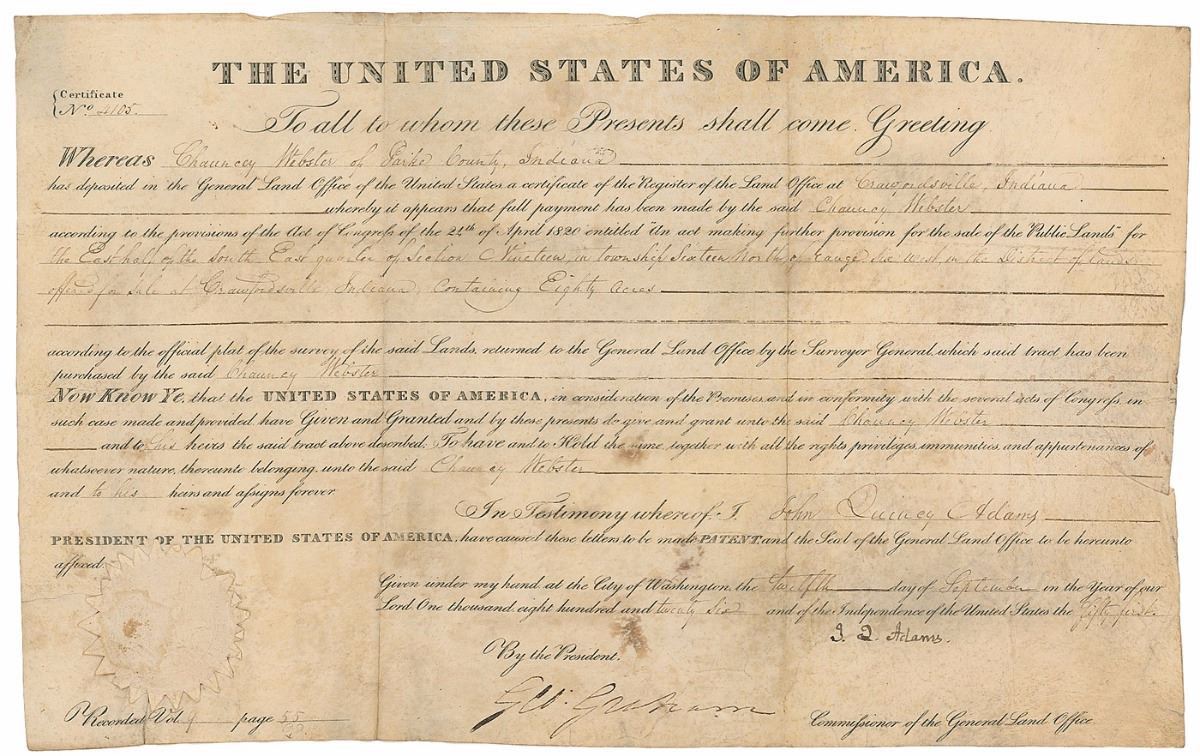 THE UNITED STATES OF AMERICA.
Certificate
No 4105.
To all to whom these Presents shall come Greeting
Whereas Chauncey Webster of Parke County, Indiana
has deposited in the General Land Office of the United States a certificate of the Register of the Land Office at Crawfordsville, Indiana
whereby it appears that full payment has been made by the said Chauncy Webster
according to the provisions of the Act of Congress of the 24th of April 1820 entitled "An act making further provision for the sale of the Public Lands" for
the East half of the South East quarter of Section Nineteen, in township Sixteen North of range Six West, in the District of Lands
offered for sale at Crawfordsville, Indiana, Containing Eighty Acres
according to the official plat of the survey of the said Lands, returned to the General Land Office by the Surveyor General, which said tract has been
purchased by the said Chauncy Webster
Now Know Ye, that the UNITED STATES OF AMERICA, in consideration of the Premises, and in conformity with the several acts of Congress, in
such case made and provided, have Given and Granted and by these presents do give and grant unto the said Chauncy Webster
and to his heirs the said tract above described, To have and to Hold the same, together with all the rights privileges, immunities, and appurtenances of
whatsoever nature, thereunto belonging, unto the said Chauncy Webster
and to his heirs and assigns forever
In Testimony whereof I, John Quincy Adams
PRESIDENT OF THE UNITED STATES OF AMERICA, have caused these letters to be made PATENT, and the Seal of the General Land Office to be hereunto
affixed
Given under my hand at the City of Washington, the twelfth day of September in the Year of our
Lord One thousand eight hundred and twenty six and of the Independence of the United States the fifty first
J. Q. Adams.
By the President.
Geo. Graham
Commissioner of the General Land Office
Recorded Vol 9 page 55